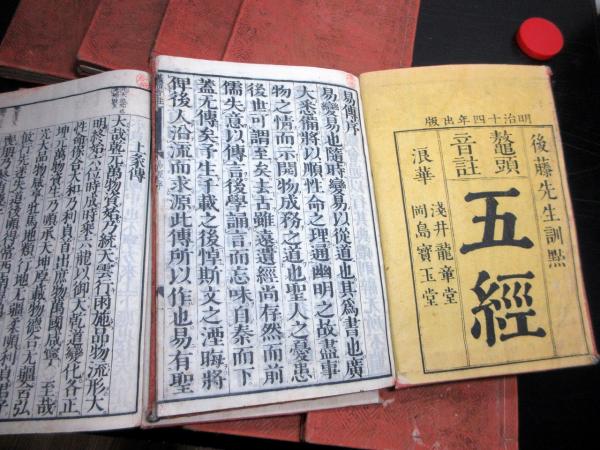 明治十四年出版
後藤先生訓點
鼇頭
音註
五經
淺井龍章堂
岡島寶玉堂
浪華
易傳序
易變易也隨時變易以從道也其爲書也廣
大悉備將以順性命之理通幽明之故盡事
物之情而示開物成務之道也聖人之憂患
後世可謂至矣去古雖遠遺經尚存然而前
儒失意以傳言後學誦言而忘味自秦而下
蓋无傳矣予生千載之後悼斯文之湮晦將
俾後人沿流而求源此傳所以作也易有聖
上彖傳
大哉乾元萬物資始乃統天雲行雨施品物流形大
明終始六位時成時乘六龍以御天乾道變化各正
性命保合大和乃利貞首出庶物萬國咸寧 至哉
坤元萬物資生乃順承天坤厚載物德合无疆含弘
光大品物咸亨牝馬地類行地无疆柔順利貞君子